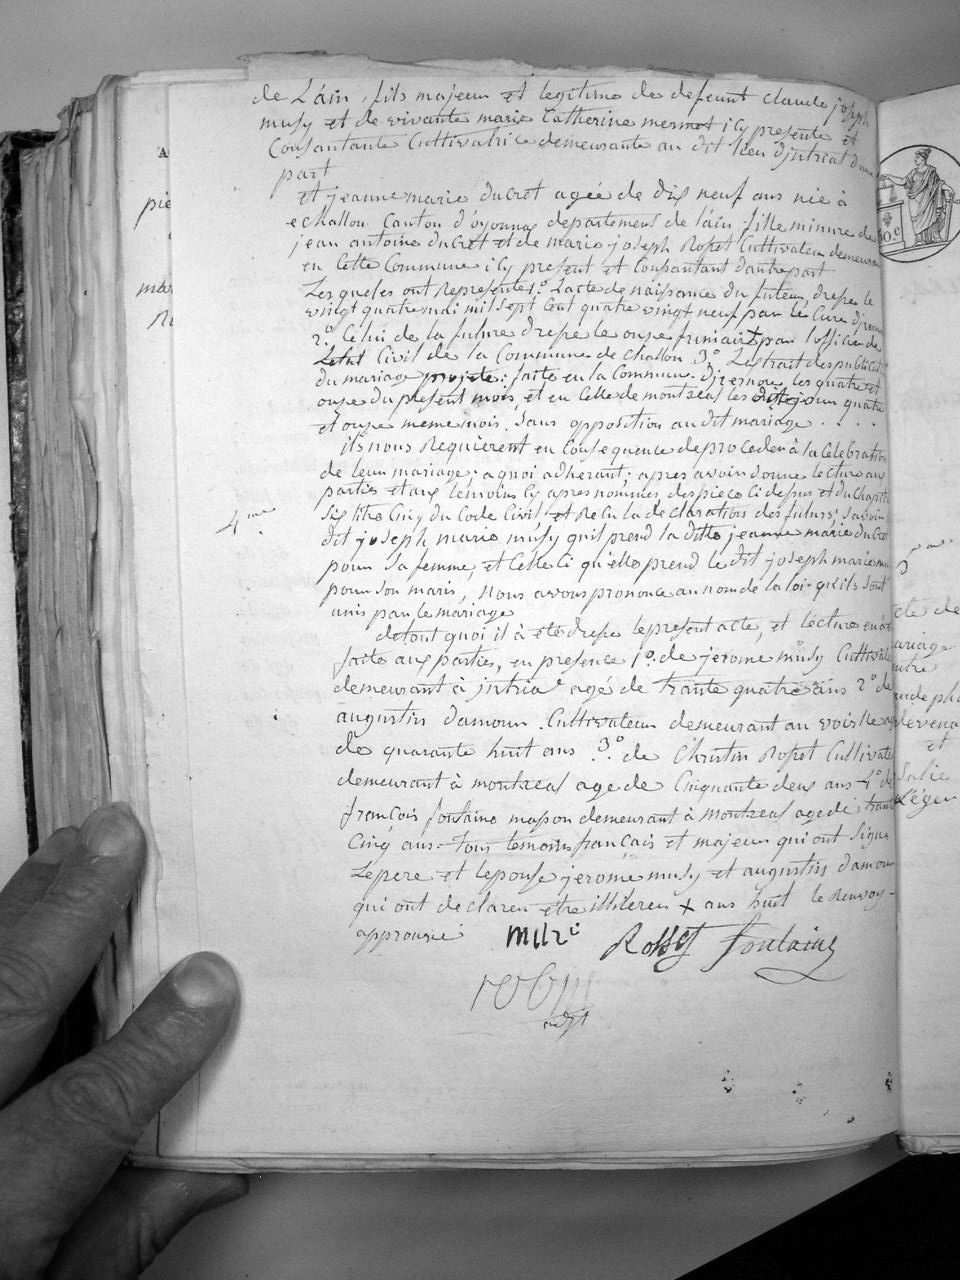 de Láin, fils majeur et legitime de defeunt claude joseph
musy et de vivante marie Catherine mermet icy presente et
Consantante Cultivatrice demeurante au dit lieu d'jntriat d'une
part
et jeanne marie ducret agée de dix neuf ans née à
echallon Canton d'oyonnax departement de láin, fille minure de
jean antoine ducret et de marie joseph Rosset Cultivateur demeurant
en Cette Commune icy present et Consantant dautre part
Lesqueles ont Representes 1.º Lacte de naissance du futeur, dresse le
vingt quatre mai mil sept Cent quatre vingt neuf par le Cure d'jzernore
2.º Celui de la future dresse le onze frimaire + par l'officier de
Letat Civil de la Commune de challon 3º Lextrait des publications
du mariage projete; faite en la Commune d'jzernore les quatre et
onze du present mois, et en Celle de montreal les dits jour quatre
et onze meme mois, sans opposition au dit mariage . . . .
ils nous Requièrent en Consequence de proceder à la Celebration
de leur mariage; a quoi adherant; apres avoir donne lecture aux
parties et aux témoins Cy apres nommés des pieces Ci dessus et du Chapitre
Six titre Cinq du Code Civil, et Recu la declaration des futurs; savoir
dit joseph marie musy quil prend la ditte jeanne marie ducret
pour sa femme, et Celle Ci qu'elle prend le dit joseph marie musy
pour son maris, Nous avons prononce au nom de la loi qu'ils sont
unis par le mariage
4.me
detout quoi il à été dresse le present acte, et lecture en a été
faite aux parties, en presence 1º. de jerome musy Cultivateur
demeurant à jntriat agé de trante quatre ans 2º de
augustin damour Cultivateur demeurant au voisiney
de quarante huit ans 3º de Christin Rosset Cultivateur
demeurant à montreal age de Cinquante deux ans 4º de
françois fontaine masson demeurant à montreal age de trante
Cinq ans tous temoins français et majeur qui ont signe
Lepere et lepouse jerome musy et augustin damour
qui ont declarer etre illiteren + ans huit le Renvoy
approuvé
Rosset fontaine
pie
mar
acte de
mariage
entre
et
Leger